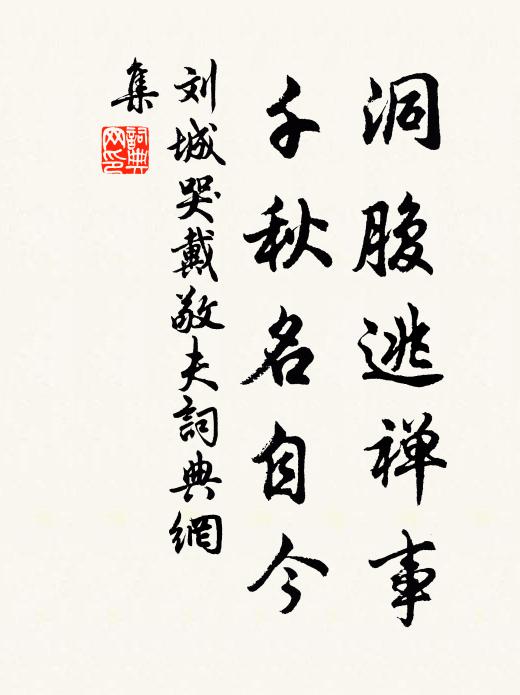 洞腹逃禅事
千秋名自今
刘城哭戴敬夫詞典網
集
詞典
网印